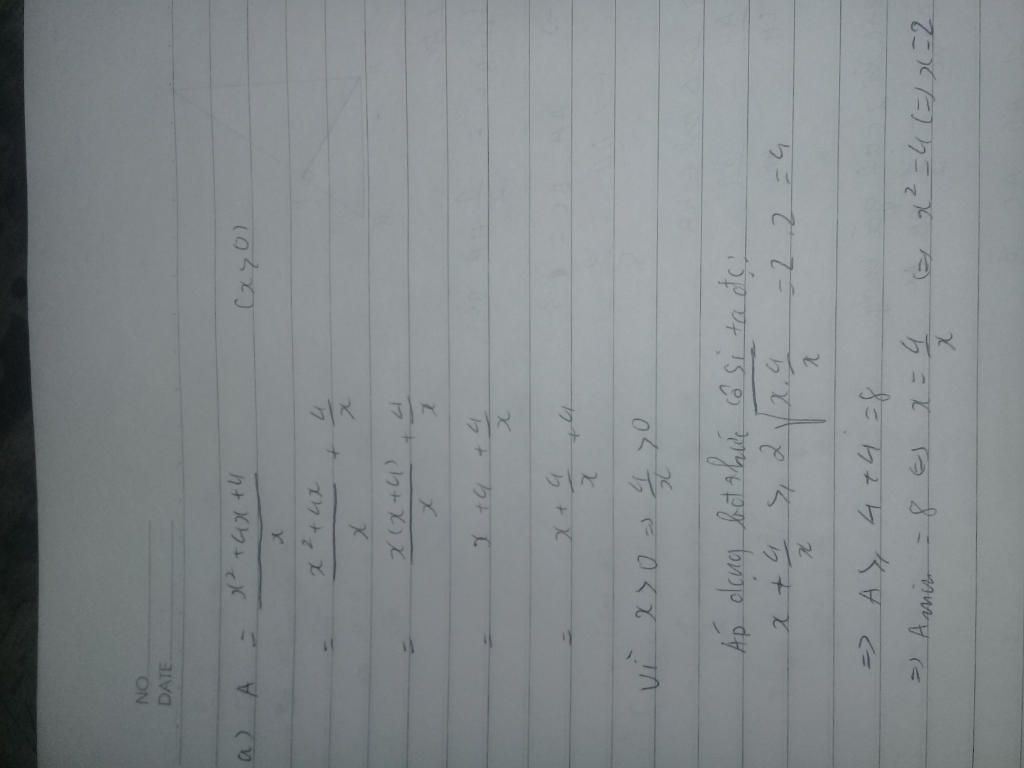 NO
DATE
a) A = (x² + 4x + 4)/x (x > 0)
= (x² + 4x)/x + 4/x
= x(x+4)/x + 4/x
= x + 4 + 4/x
= x + 4/x + 4
Vì x > 0 => 4/x > 0
Áp dụng bđt thức cô si ta đc:
x + 4/x ≥ 2√(x.4/x) = 2.2 = 4
=> A ≥ 4 + 4 = 8
=> Amin = 8 (=) x = 4/x (=) x² = 4 (=) x = 2